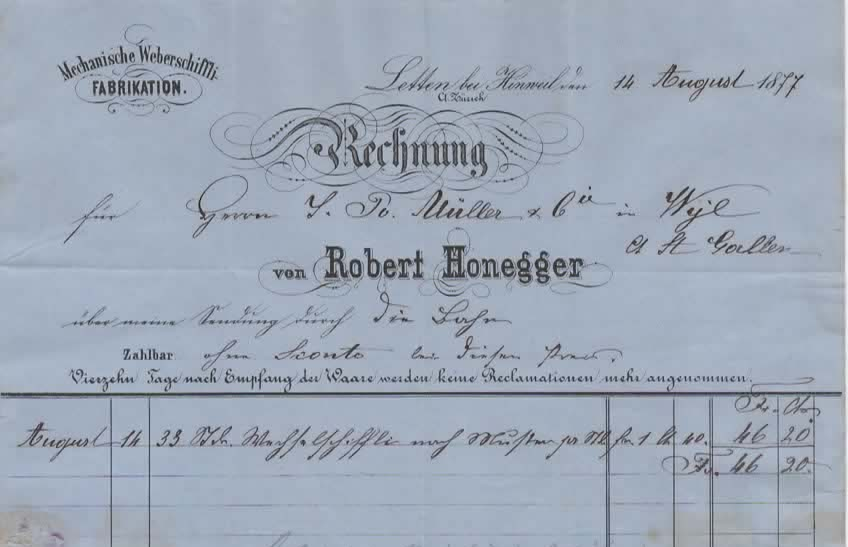 Mechanische Weberschiffli-
FABRIKATION.
Letten bei Hinweil den 14 August 1877
Ct. Zürich
Rechnung
für Herrn J. Müller & Cie in Wyl
Ct St Gallen
von Robert Honegger
über meine Sendung durch die Bahn
Zahlbar ohne Sconto bei diesem Preis.
Vierzehn Tage nach Empfang der Waare werden keine Reclamationen mehr angenommen.
Fr. Cts
August 14 33 Stck. Wechselschiffli nach Muster pr Stk fr. 1 Ct 40. 46 20
Fr. 46 20.